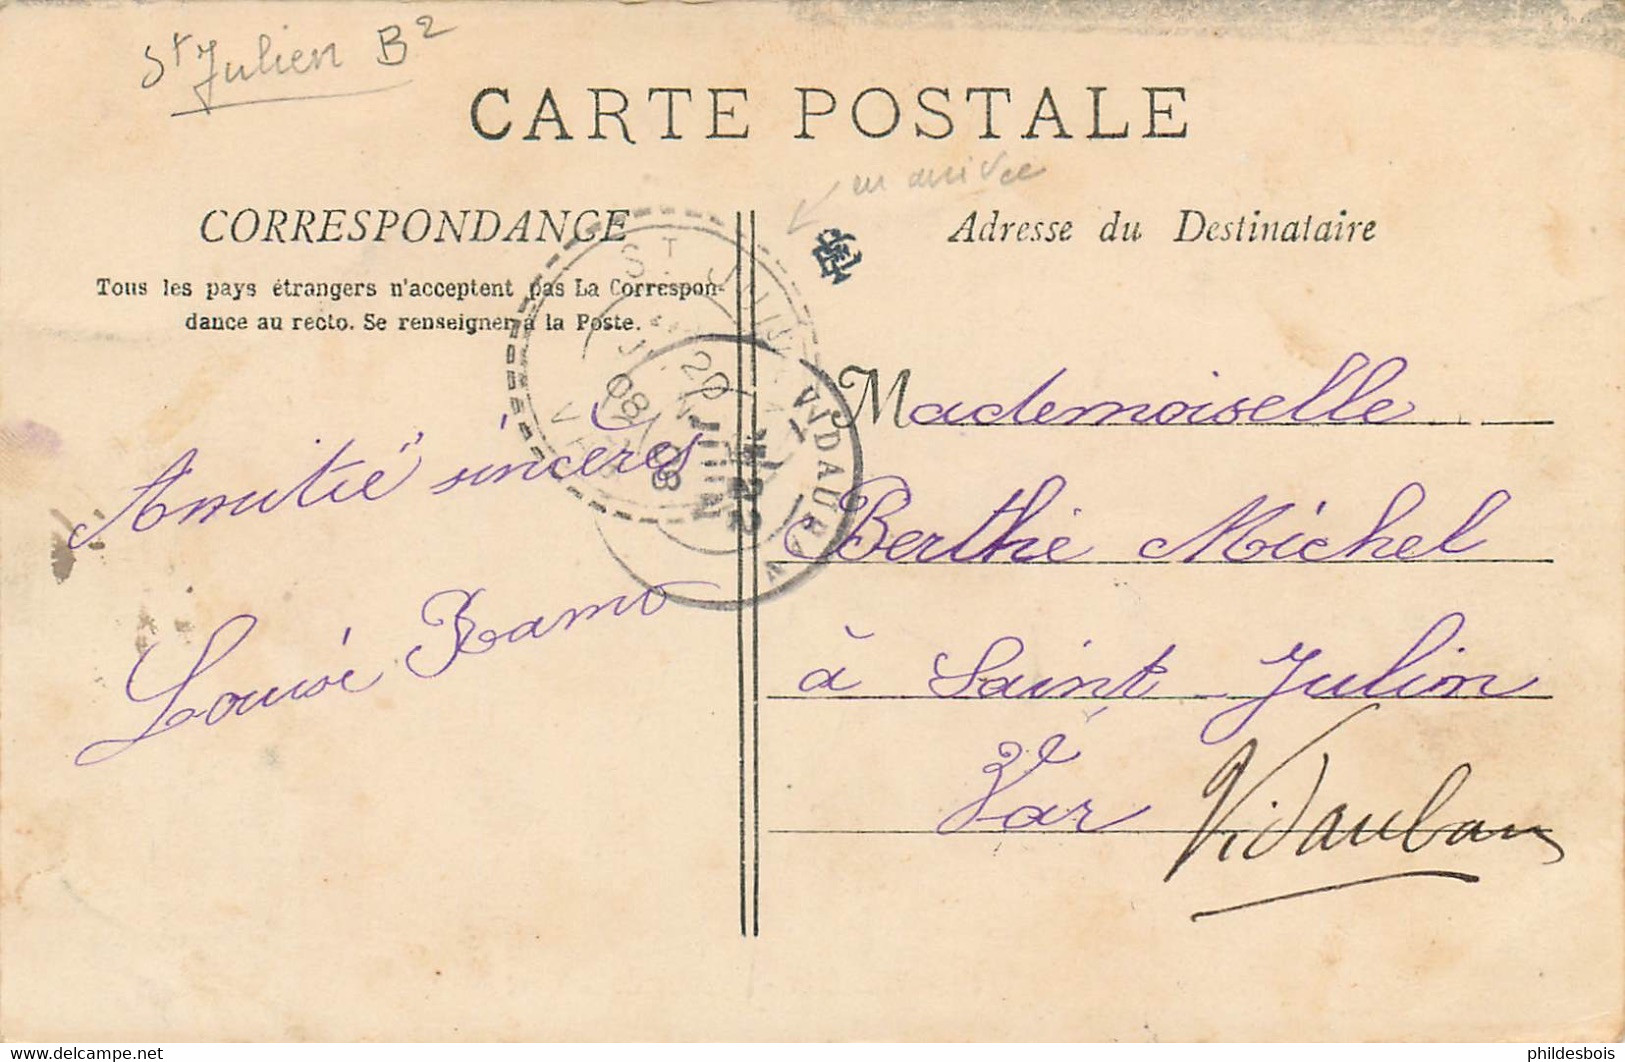 St Julien B2
CARTE POSTALE
en arrivée
CORRESPONDANCE
Adresse du Destinataire
Tous les pays étrangers n'acceptent pas La Correspon-
dance au recto. Se renseigner à la Poste.
Amitié sincères
Louise Ramo
Mademoiselle
Berthe Michel
à Saint Julien
Var
Vidauban
ST JULIEN
20
08
VAR
VIDAUBAN
22
JUIN
08
phildesbois
delcampe.net